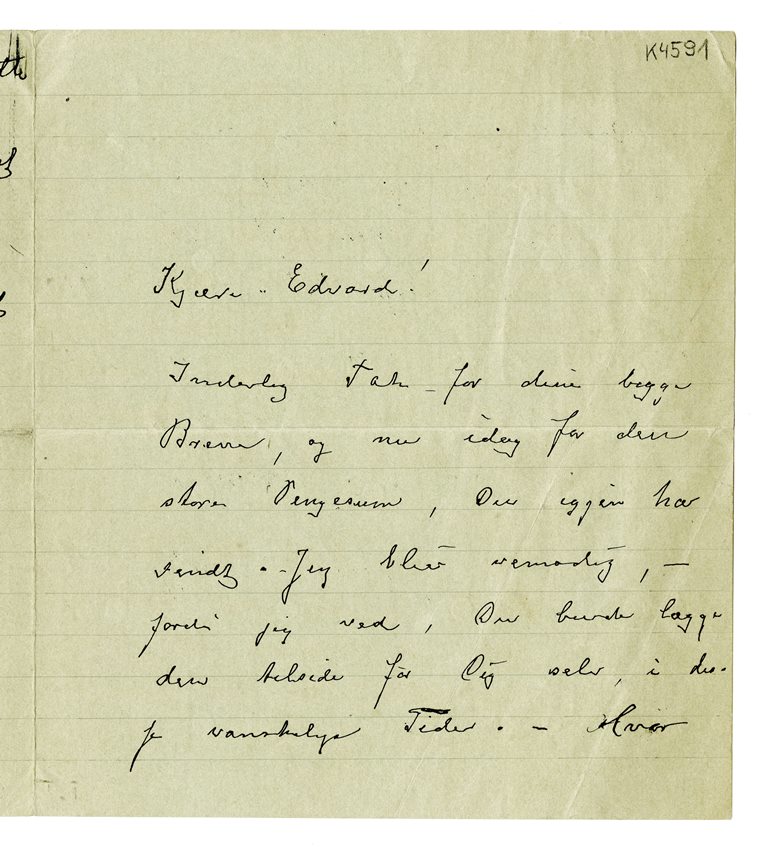 K4591
Kjære Edvard!
Inderlig Tak – for dine begge
Breve, og nu idag for den
store Pengesum, Du iggjen har
sendt. – Jeg blir vemodig, –
fordi jeg ved, Du burde lægge
den tilside for Dig selv, i dis-
se vanskelige Tider. – Hvor